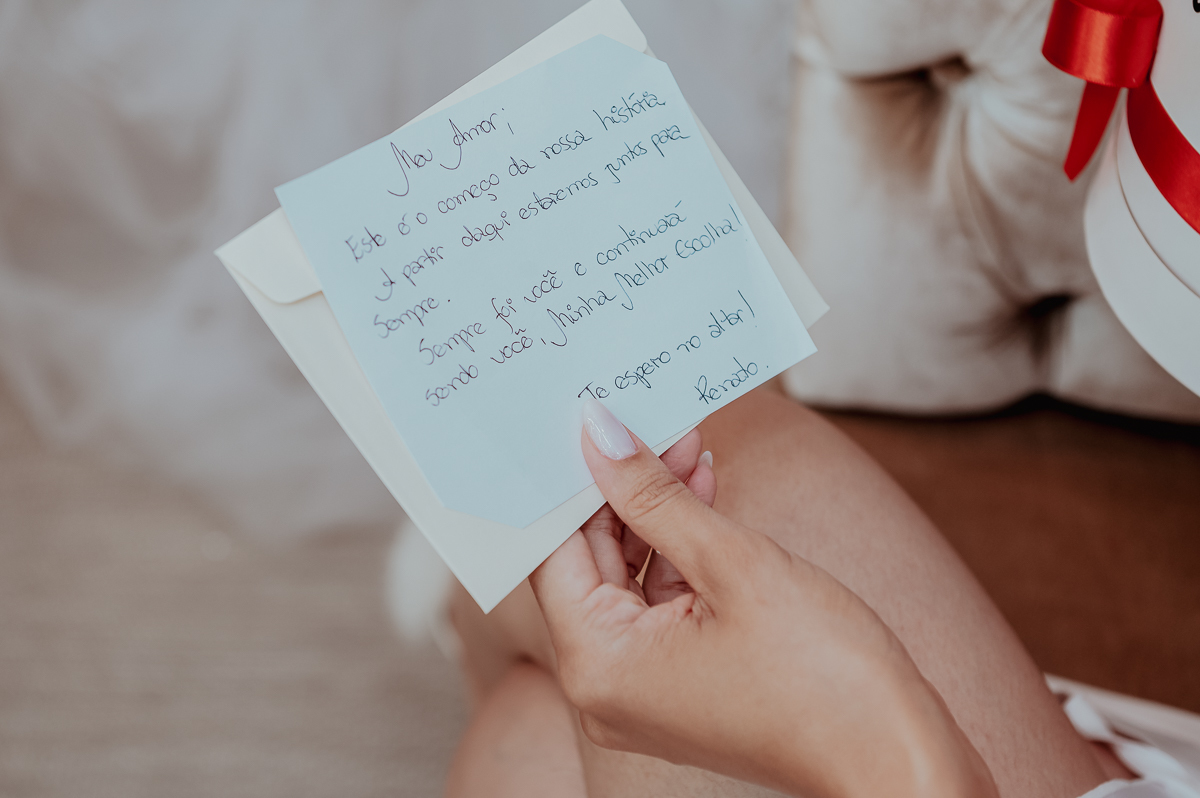 Meu Amor;
Este é o começo da nossa história
A partir daqui estaremos juntos para
sempre.
Sempre foi você e continuará
sendo você, Minha Melhor Escolha!
Te espero no altar!
Renato.